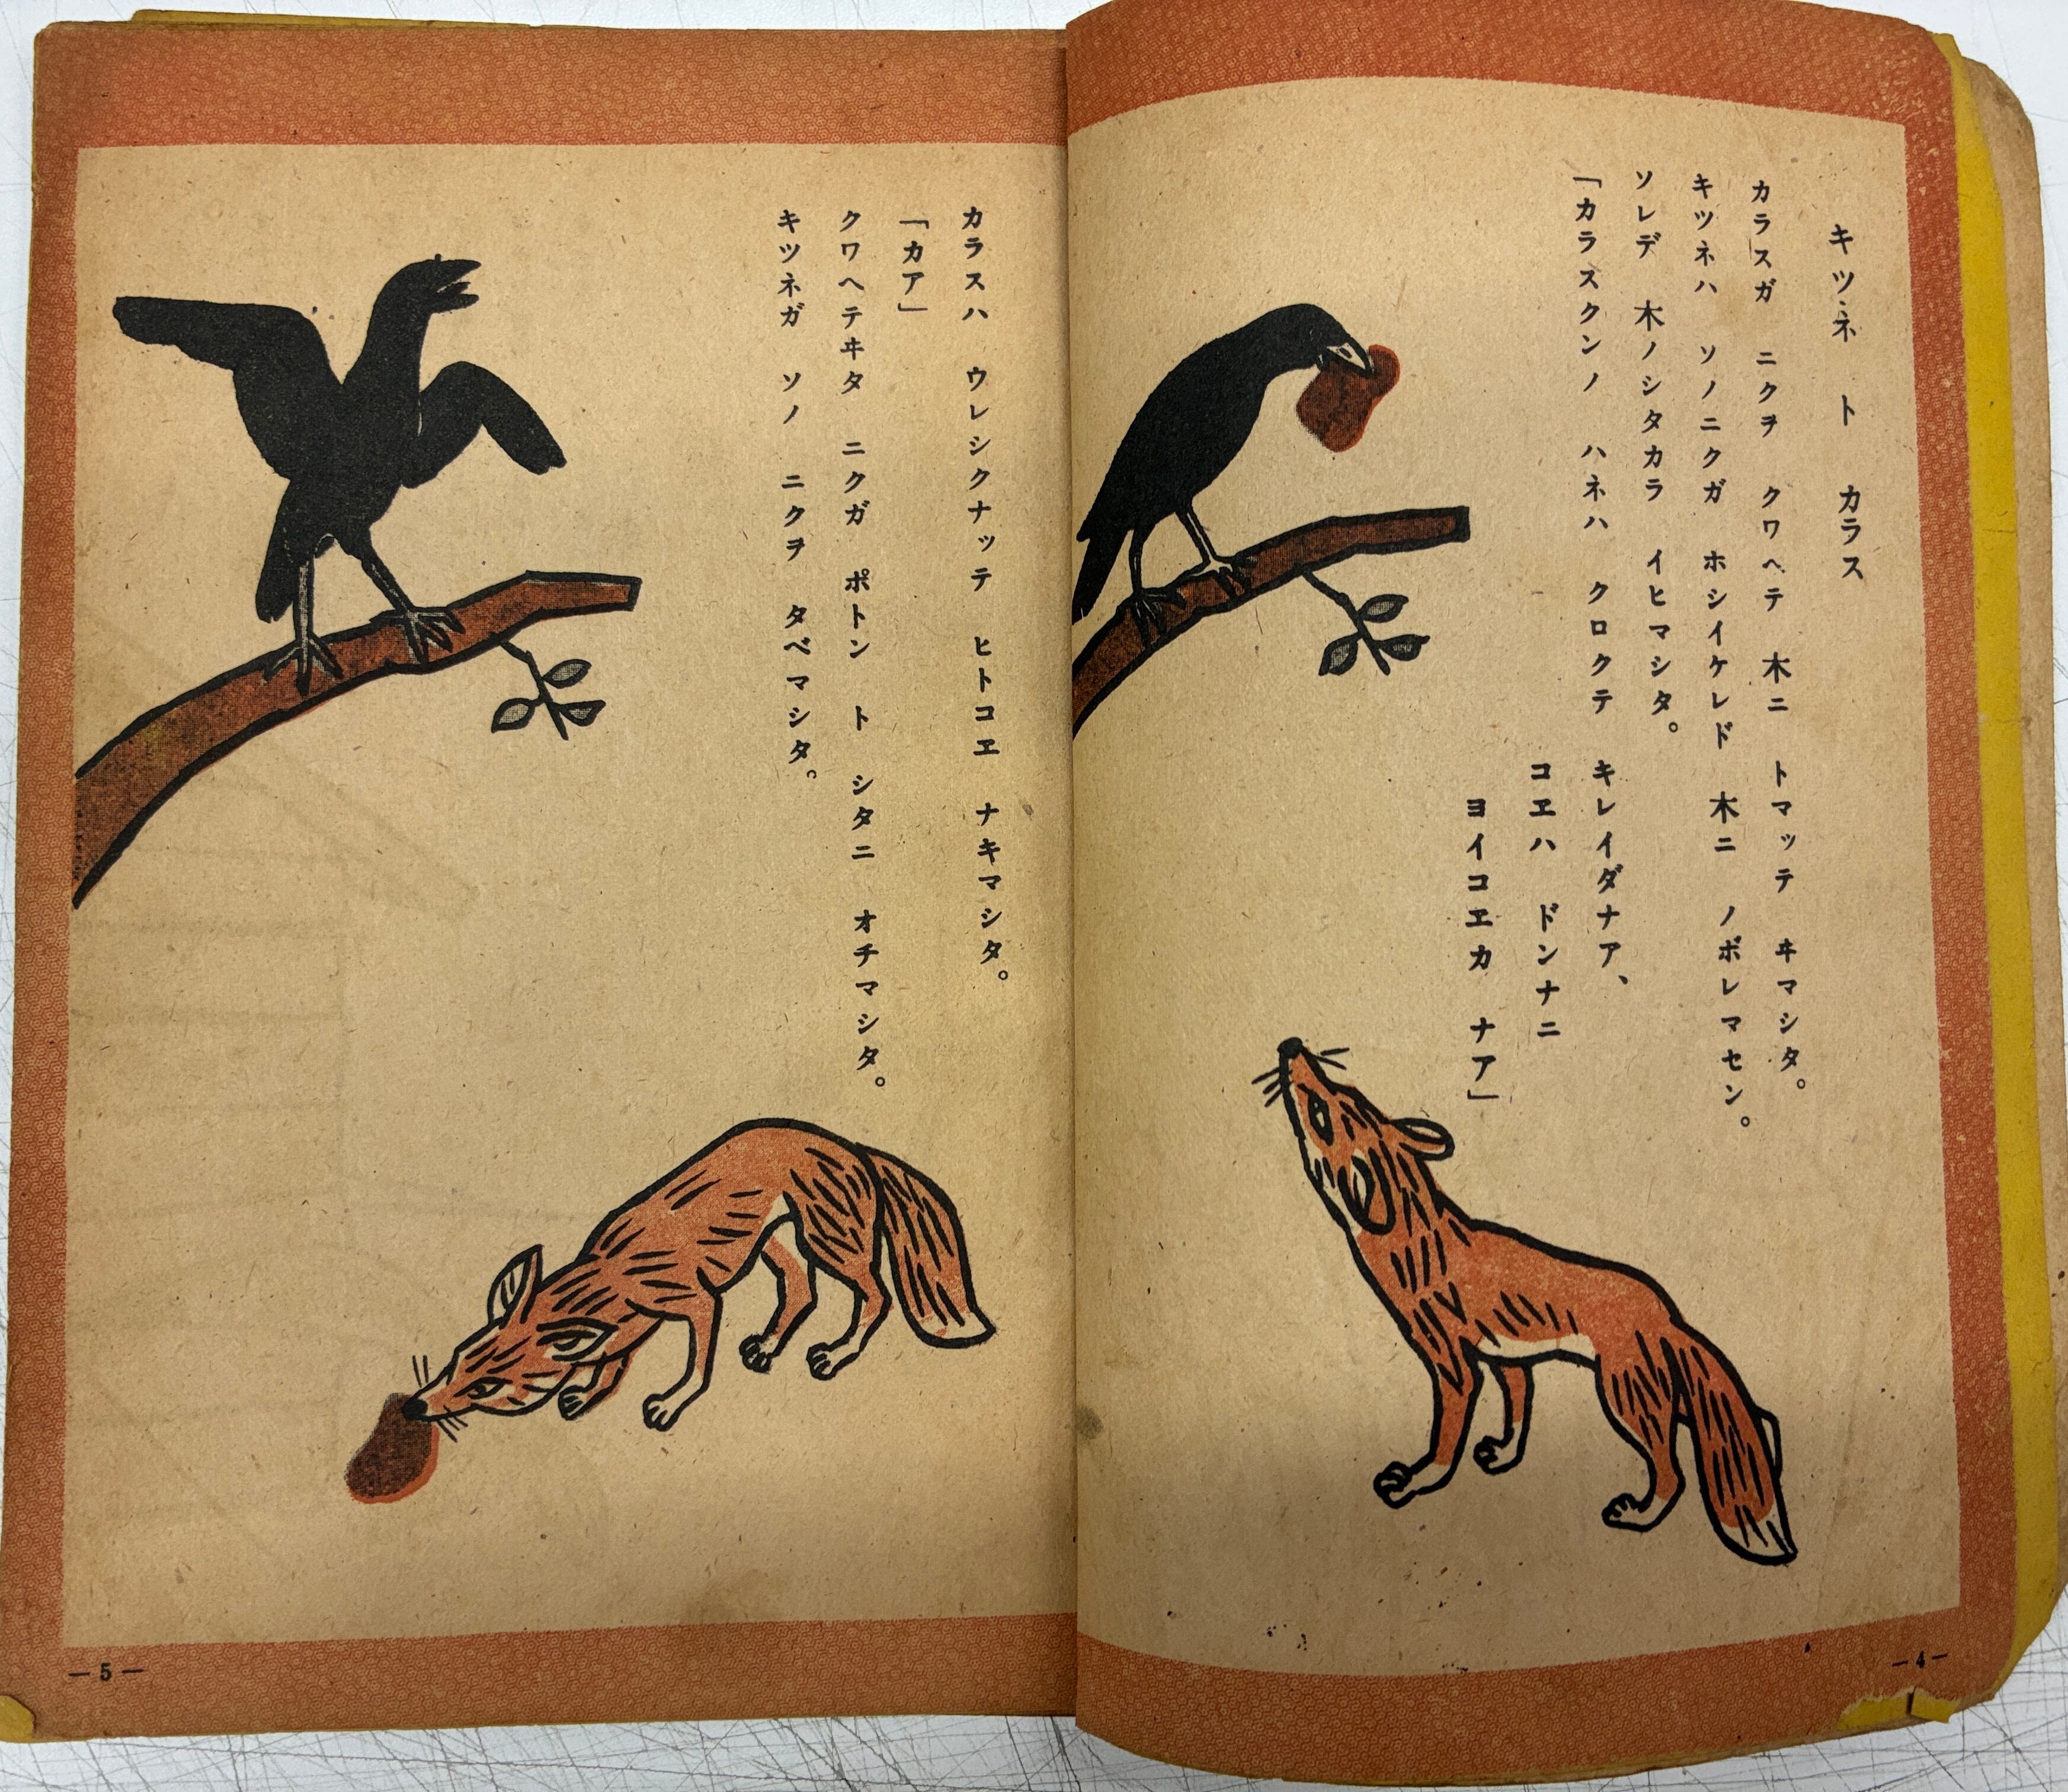 キツネ ト カラス
カラスガ ニクヲ クワヘテ 木ニ トマッテ ヰマシタ。
キツネハ ソノニクガ ホシイケレド 木ニ ノボレマセン。
ソレデ 木ノシタカラ イヒマシタ。
「カラスクンノ ハネハ クロクテ キレイダナア、
コヱハ ドンナニ
ヨイコヱカ ナア」
—4—
カラスハ ウレシクナッテ ヒトコヱ ナキマシタ。
「カア」
クワヘテヰタ ニクガ ポトン ト シタニ オチマシタ。
キツネガ ソノ ニクヲ タベマシタ。
—5—